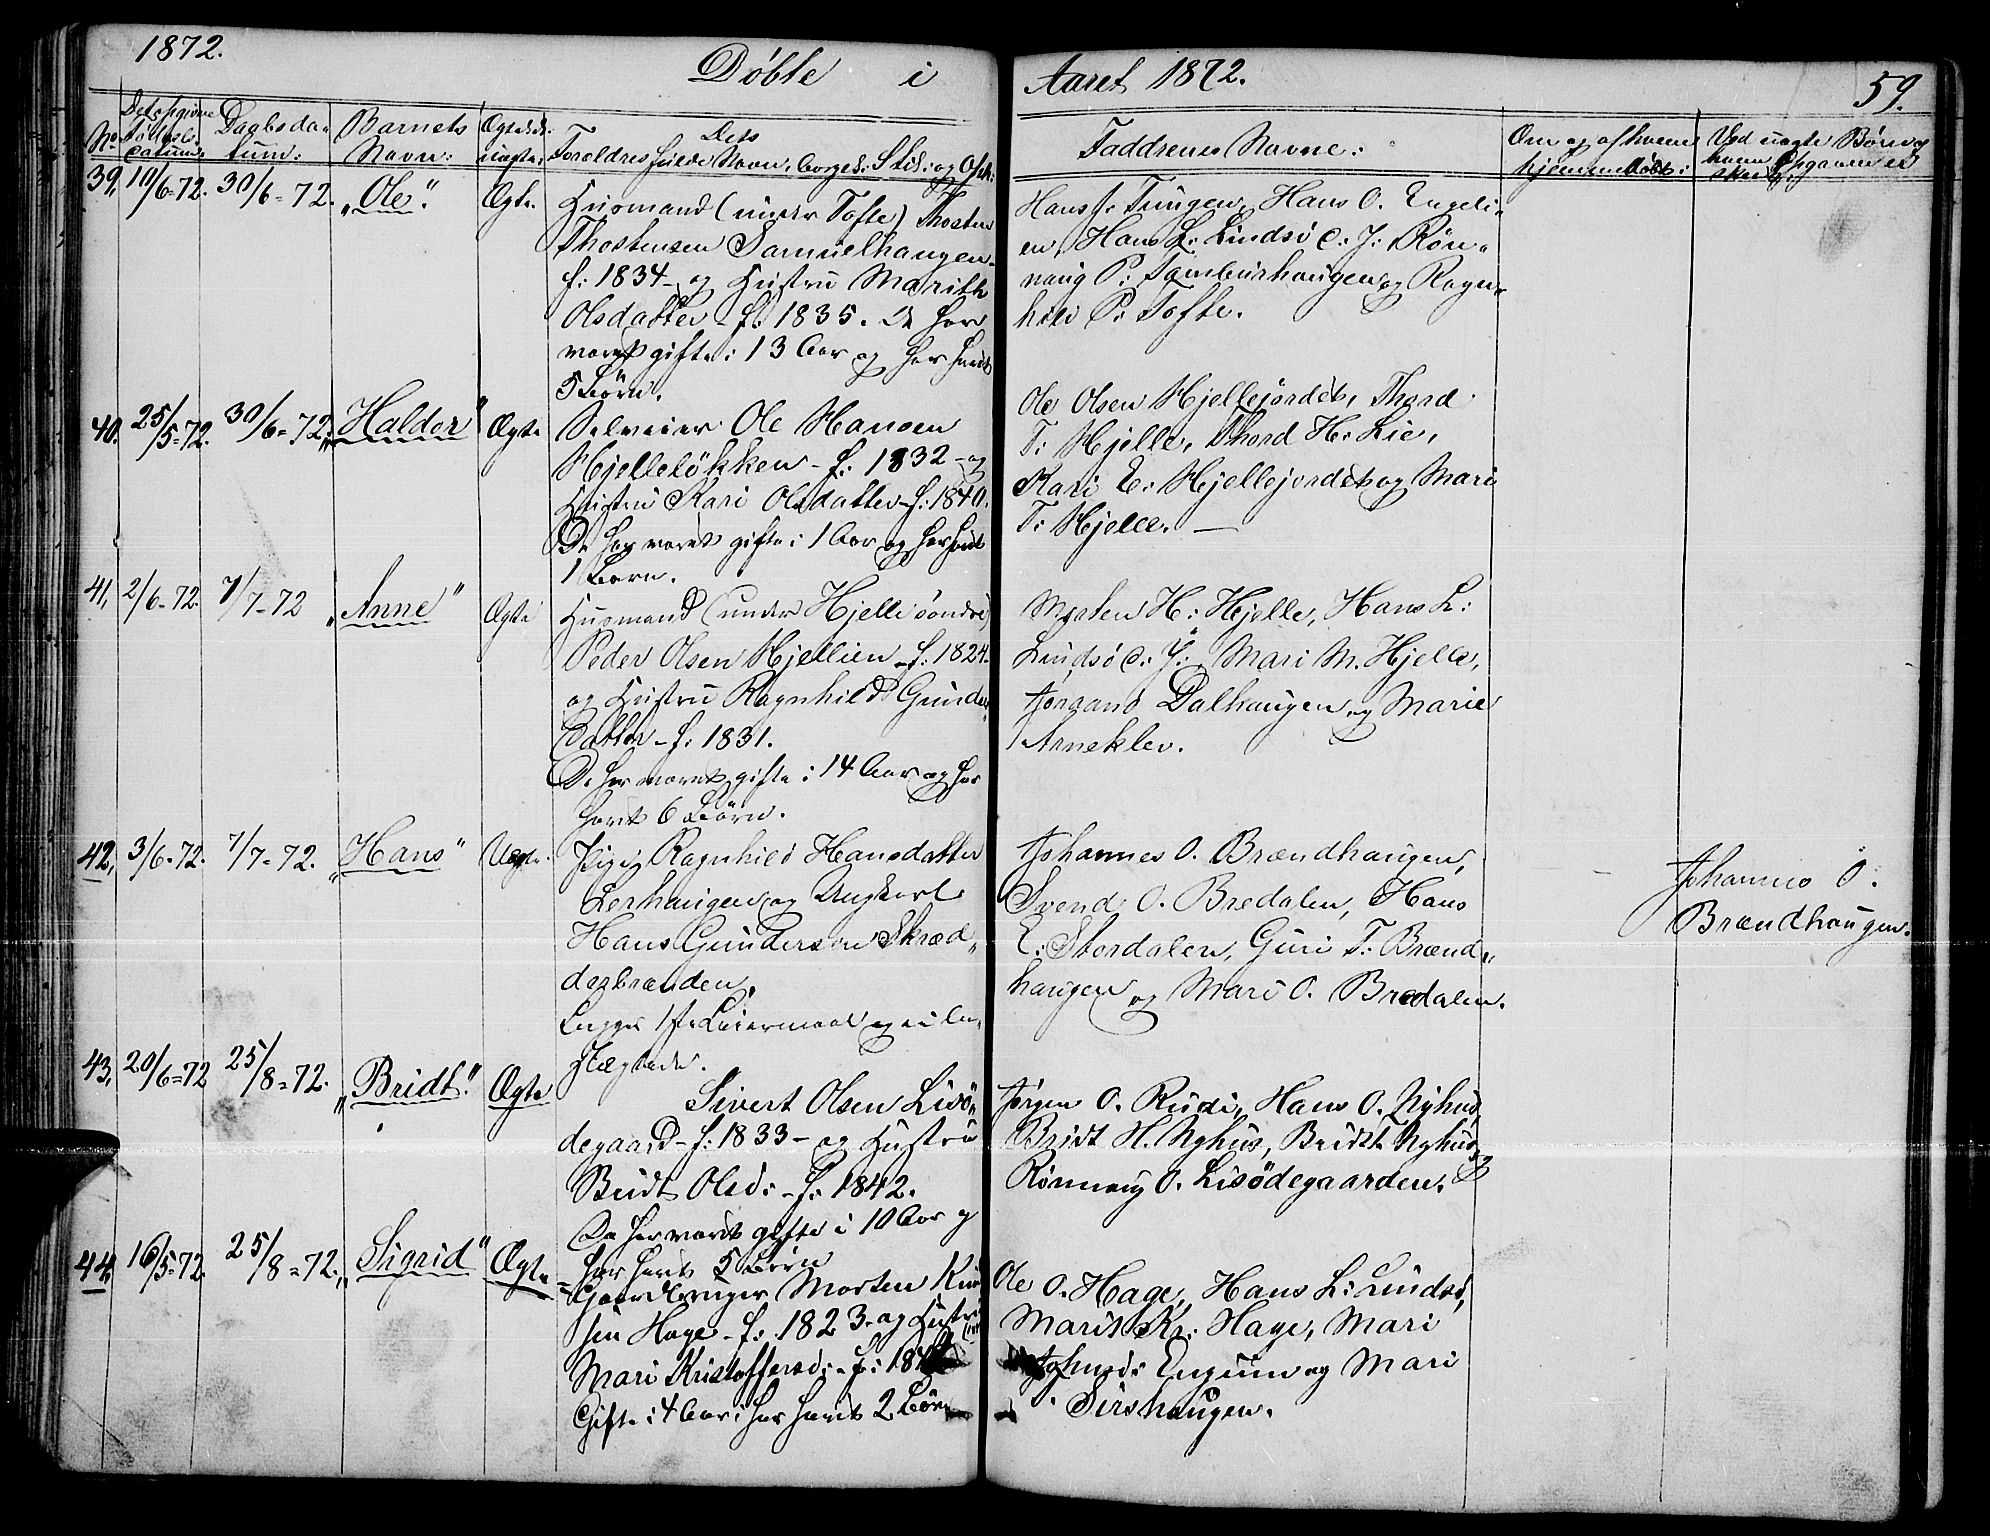 1872.
Døbte i
Aaret 1872.
59.
No
Daabsda-
tum:
Barnets
Navn:
Dets
Forældres fulde Navn, Borgerl: Stil: og
Faddrenes Navne:
Om og af hvem
hjemmedøbt:
Ved uægte Børn
39, 10/6-72. 30/6-72. "Ole". Ægte.
Husmand (under Tofte) Thosten
Thostensen Samuelhaugen -
f: 1834 - og Hustru Marith
Olsdatter - f: 1835. De har
været gifte i 13 Aar og har havt
5 Børn.
Hans J. Tungen, Hans O. Engeli-
en, Hans L: Lindsø c: J: Røn-
naug P: Tamburhaugen og Ragn-
hild P: Tofte.
40. 25/5-72. 30/6-72. "Haldor" Ægte
Selveier Ole Hansen
Hjelleløkken - f: 1832 - og
Hustru Kari Olsdatter - f: 1840.
De har været gifte i 1 Aar og har havt
1 Barn.
Ole Olsen Hjellejordet, Thord
T: Hjelle, Thord H: Lie,
Kari E: Hjellejordet og Mari
T: Hjelle. —
41, 2/6-72. 7/7-72 "Anne" Ægte
Husmand (under Hjelle søndre)
Peder Olsen Hjellien - f: 1824.
og Hustru Ragnhild Gunder-
datter - f: 1831.
De har været gifte i 14 Aar og har
havt 6 Børn.
Morten H: Hjelle, Hans L:
Lindsø c: J:, Mari M. Hjelle,
Jørgand Dalhaugen og Marie
Arneklev.
42, 3/6-72. 7/7-72. "Hans" Uægte.
Pige Ragnhild Hansdatter
Lerhaugen og Ungkarl
Hans Gundersen Skræd-
derbrænden.
Begges 1ste Leiermaal og ei be-
slægtede.
Johannes O. Brændhaugen,
Svend O. Bredalen, Hans
E: Stordalen, Guri T: Brænd-
haugen og Mari O. Bredalen.
Johannes O.
Brændhaugen.
43, 20/6-72 25/8-72. "Bridt." Ægte
Sivert Olsen Lisø-
degaard - f: 1833 - og Hustru
Bridt Olsd: - f: 1842.
De har været gifte i 10 Aar og
har havt 5 Børn
Jørgen O. Rudi, Hans O. Nyhus,
Bridt H. Nyhus, Bridt Nyhus og
Rønnaug O. Lisødegaarden.
44, 16/5-72. 25/8-72. "Sigrid" Ægte
Gaardbruger Morten
sen Hage - f: 1823 - og Hustru
Mari Kristoffersd: - f:
Gifte i 4 Aar, har havt 2 Børn
Ole O. Hage, Hans L: Lindsø,
Marit Kr: Hage, Mari
Johnsd: Engum og Mari
Sirshaugen.